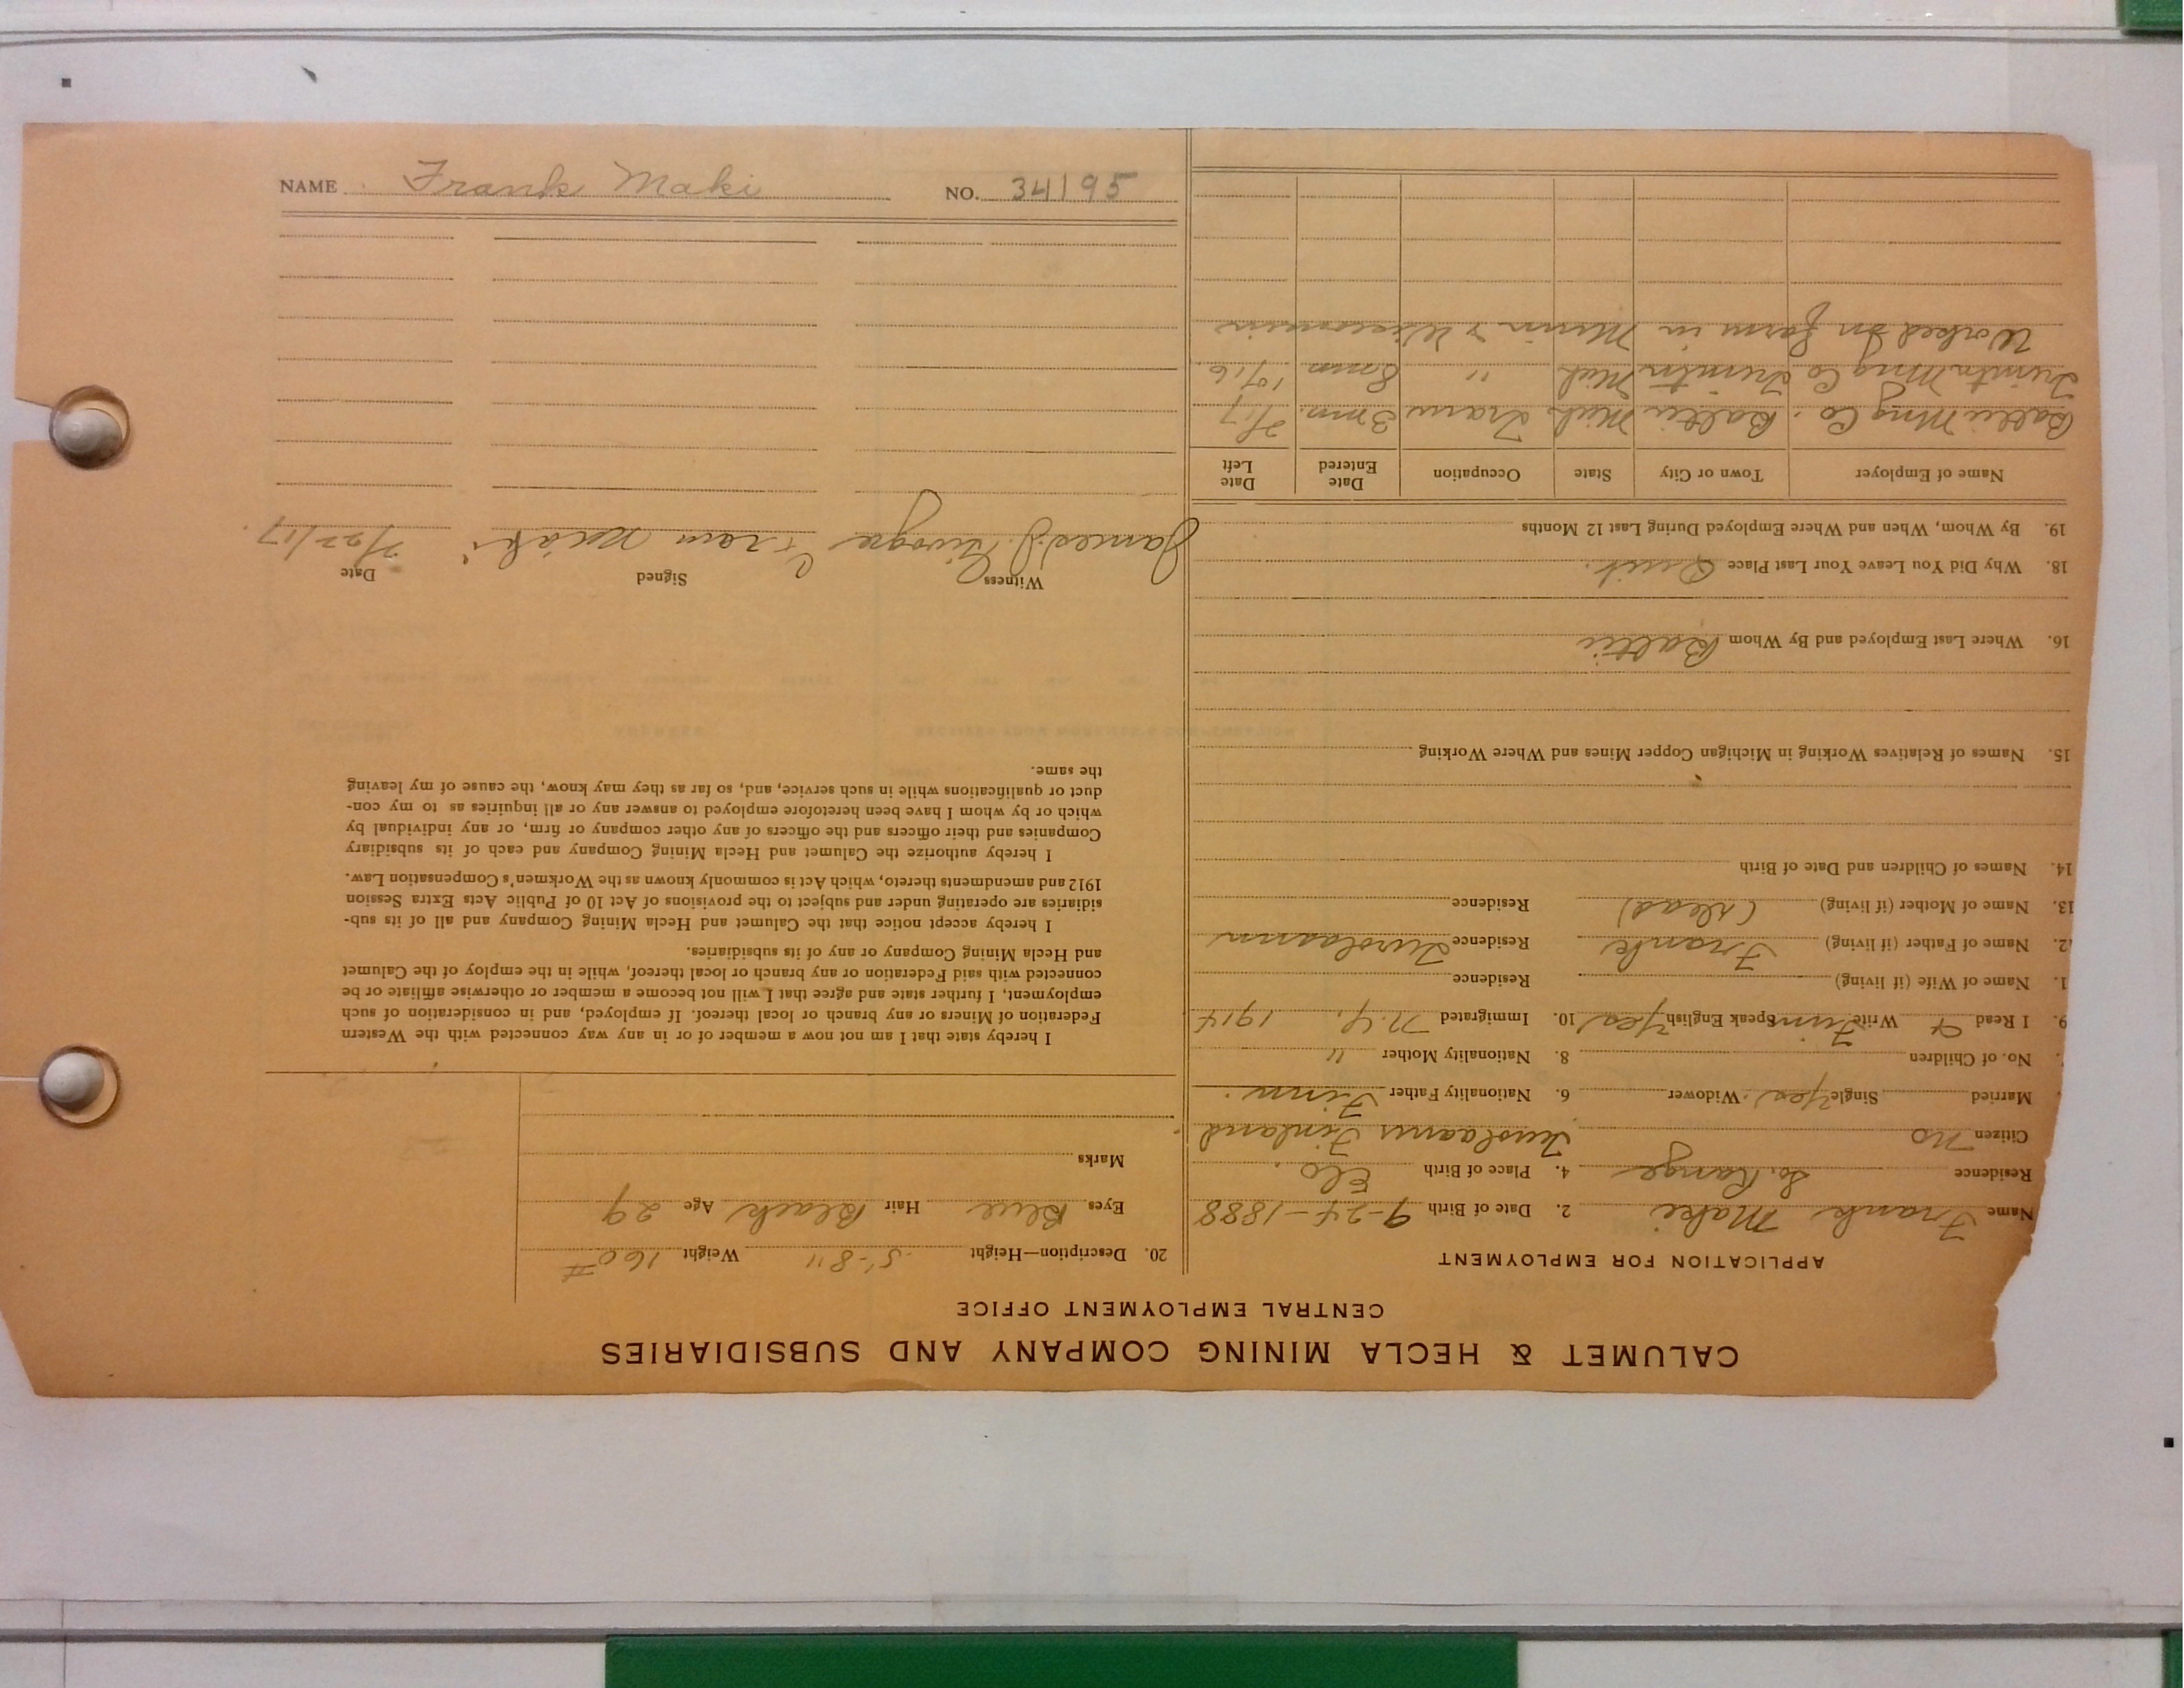 CALUMET & HECLA MINING COMPANY AND SUBSIDIARIES
CENTRAL EMPLOYMENT OFFICE
APPLICATION FOR EMPLOYMENT
Name Frank Maki 2. Date of Birth 9-24-1888
Residence So. Range 4. Place of Birth Elo.
Citizen no Finland
Married Single Yes. Widower 6. Nationality Father Finn.
No. of Children 8. Nationality Mother "
9. I Read & Write Finn Speak English Yes 10. Immigrated N.Y. 1914
1. Name of Wife (if living) Residence
2. Name of Father (if living) Frank Residence
13. Name of Mother (if living) (dead) Residence
14. Names of Children and Date of Birth
15. Names of Relatives Working in Michigan Copper Mines and Where Working
16. Where Last Employed and By Whom Baltic
18. Why Did You Leave Your Last Place Quit.
19. By Whom, When and Where Employed During Last 12 Months
Name of Employer Town or City State Occupation Date Entered Date Left
Baltic Mng Co. Baltic Mich Tram 3 mn. 7/17
Trimtn Mng Co Trimtn Mich " 8 mn 10/16
Worked on farm in Minn & Wisconsin
20. Description—Height 5'-8" Weight 160#
Eyes Blue Hair Black Age 29
Marks
I hereby state that I am not now a member of or in any way connected with the Western
Federation of Miners or any branch or local thereof. If employed, and in consideration of such
employment, I further state and agree that I will not become a member or otherwise affiliate or be
connected with said Federation or any branch or local thereof, while in the employ of the Calumet
and Hecla Mining Company or any of its subsidiaries.
I hereby accept notice that the Calumet and Hecla Mining Company and all of its sub-
sidiaries are operating under and subject to the provisions of Act 10 of Public Acts Extra Session
1912 and amendments thereto, which Act is commonly known as the Workmen's Compensation Law.
I hereby authorize the Calumet and Hecla Mining Company and each of its subsidiary
Companies and their officers and the officers of any other company or firm, or any individual by
which or by whom I have been heretofore employed to answer any or all inquiries as to my con-
duct or qualifications while in such service, and, so far as they may know, the cause of my leaving
the same.
Witness Signed Date
James J. Fram Mäki 7/22/17
NAME Frank Maki NO. 34195